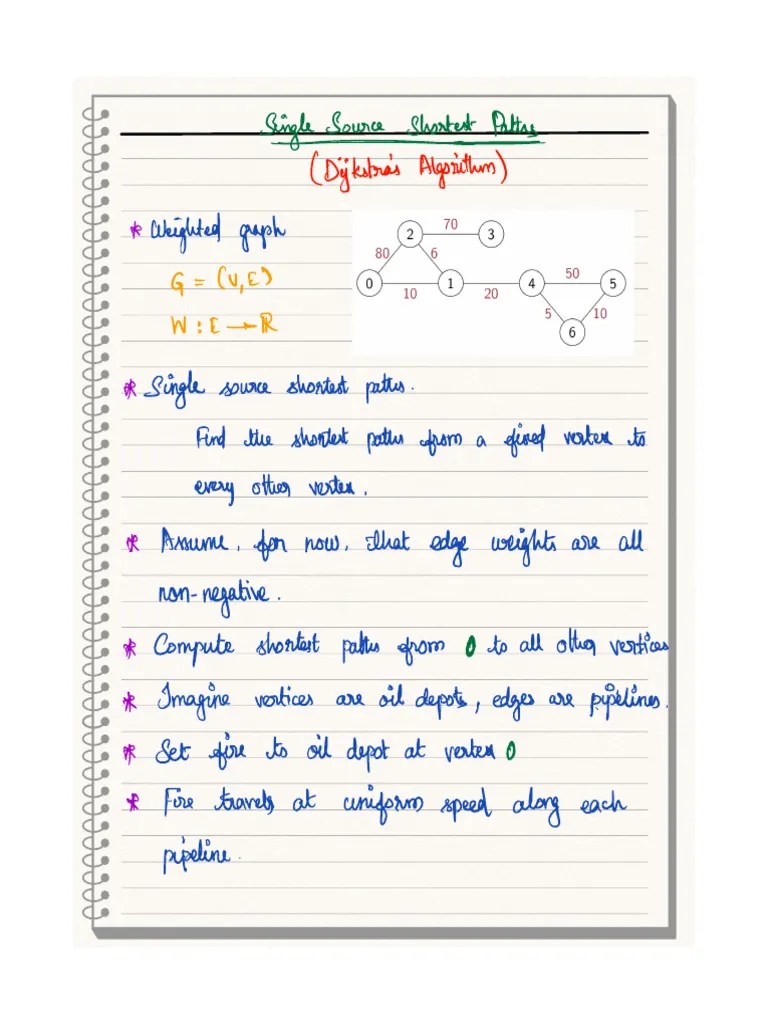 Single Source Shortest Paths
(Dijkstra's Algorithm)
* Weighted graph
G = (V, E)
W : E → ℝ
70
2 3
80 6
0 1 4 50 5
10 20
5 10
6
* Single source shortest paths.
Find the shortest paths from a fixed vertex to
every other vertex.
* Assume, for now, that edge weights are all
non-negative.
* Compute shortest paths from 0 to all other vertices
* Imagine vertices are oil depots, edges are pipelines.
* Set fire to oil depot at vertex 0
* Fire travels at uniform speed along each
pipeline.